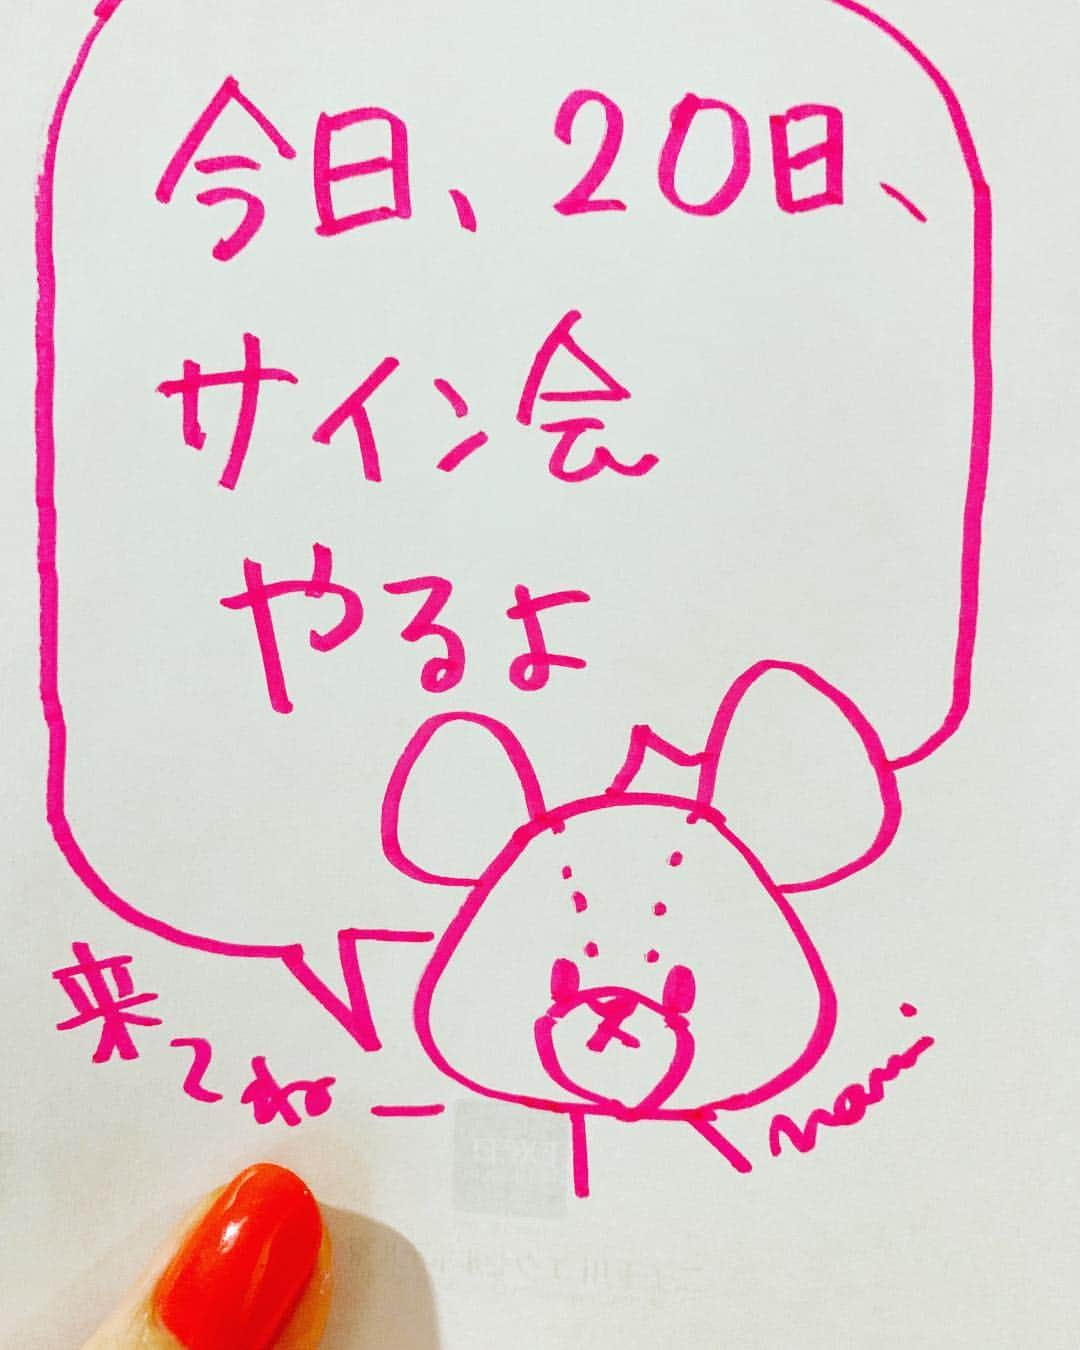 今日、20日、
サイン会
やるよ
来てねー
nami